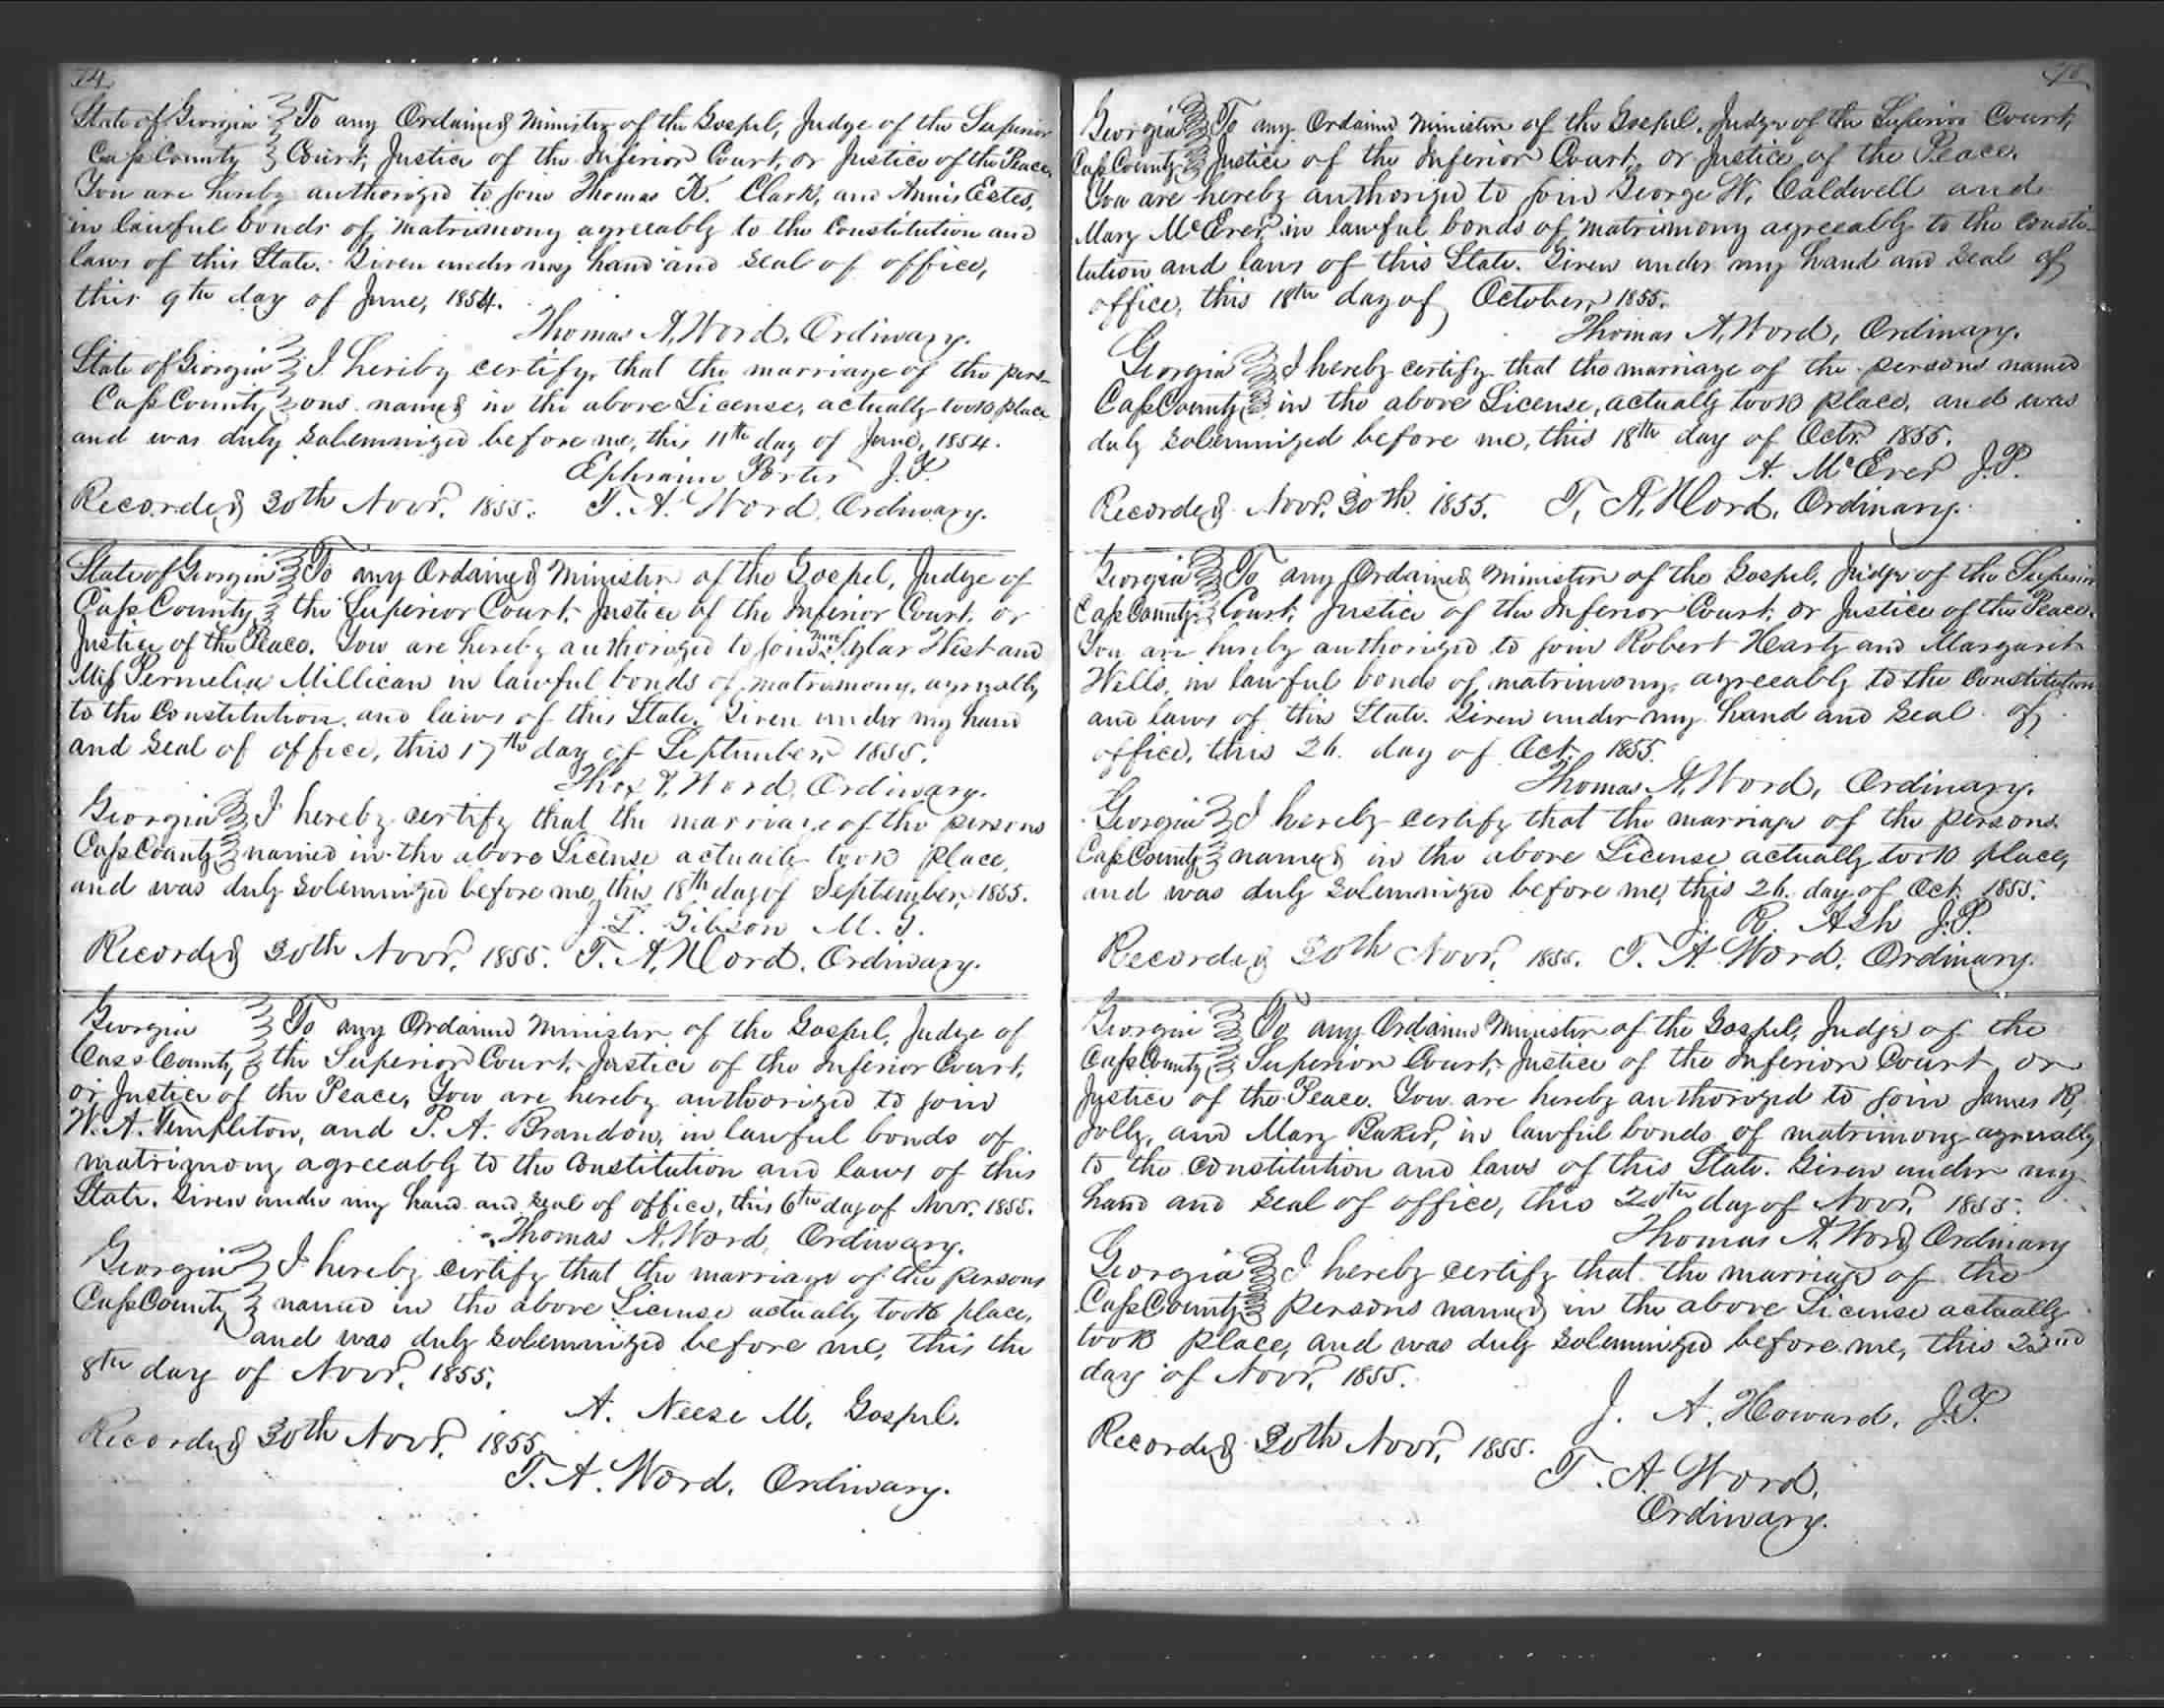 74
State of Georgia To any Ordained Minister of the Gospel, Judge of the Superior
Cass County Court, Justice of the Inferior Court, or Justice of the Peace,
You are hereby authorized to join Thomas K. Clark, and Annis Estes,
in lawful bonds of matrimony agreeably to the Constitution and
laws of this State. Given under my hand and seal of office,
this 9th day of June, 1854.
Thomas A. Word, Ordinary.
State of Georgia I hereby certify, that the marriage of the pers-
Cass County ons named in the above License, actually took place
and was duly solemnized before me, this 11th day of June, 1854.
Ephraim Porter J.P.
Recorded 30th Novr. 1855. T. A. Word, Ordinary.
State of Georgia To any Ordained Minister of the Gospel, Judge of
Cass County, the Superior Court, Justice of the Inferior Court, or
Justice of the Peace. You are hereby authorized to join West and
Miss Permelia Millican in lawful bonds of matrimony, agreeably
to the Constitution, and laws of this State. Given under my hand
and seal of office, this 17th day of September, 1855.
Thos A. Word, Ordinary.
Georgia I hereby certify that the marriage of the persons
Cass County named in the above License actually took place,
and was duly solemnized before me, this 18th day of September, 1855.
J. L. Gibson M. G.
Recorded 30th Novr. 1855. T. A. Word, Ordinary.
Georgia To any Ordained Minister of the Gospel, Judge of
Cass County, the Superior Court, Justice of the Inferior Court,
or Justice of the Peace, You are hereby authorized to join
W. A. Templeton, and P. A. Brandon, in lawful bonds of
matrimony agreeably to the Constitution and laws of this
State. Given under my hand and seal of office, this 6th day of Novr. 1855.
Thomas A. Word, Ordinary.
Georgia I hereby certify that the marriage of the persons
Cass County named in the above License actually took place,
and was duly solemnized before me, this the
8th day of Novr. 1855.
A. Neese M. Gospel.
Recorded 30th Novr. 1855.
T. A. Word, Ordinary.
Georgia To any Ordained Minister of the Gospel, Judge of the Superior Court,
Cass County Justice of the Inferior Court, or Justice of the Peace.
You are hereby authorized to join George W. Caldwell and
Mary McErer, in lawful bonds of matrimony agreeably to the consti-
tution and laws of this State. Given under my hand and seal of
office, this 18th day of October, 1855.
Thomas A. Word, Ordinary.
Georgia I hereby certify that the marriage of the persons named
Cass County in the above License, actually took place, and was
duly solemnized before me, this 18th day of Octr. 1855.
A. McErer J.P.
Recorded Novr. 30th. 1855. T. A. Word, Ordinary.
Georgia To any Ordained Minister of the Gospel, Judge of the Superior
Cass County Court, Justice of the Inferior Court, or Justice of the Peace.
You are hereby authorized to join Robert Harty and Margaret
Wells, in lawful bonds of matrimony, agreeably to the Constitution
and laws of this State. Given under my hand and seal of
office, this 26. day of Oct. 1855.
Thomas A. Word, Ordinary.
Georgia I hereby certify that the marriage of the persons
Cass County named in the above License, actually took place,
and was duly solemnized before me, this 26. day of Oct. 1855.
J. R. Ash J.P.
Recorded 30th Novr. 1855. T. A. Word, Ordinary.
Georgia To any Ordained Minister of the Gospel, Judge of the
Cass County Superior Court, Justice of the Inferior Court, or
Justice of the Peace. You are hereby authorized to join James R.
Jolly, and Mary Baker, in lawful bonds of matrimony agreeably
to the Constitution and laws of this State. Given under my
hand and seal of office, this 20th day of Novr. 1855.
Thomas A. Word Ordinary
Georgia I hereby certify that the marriage of the
Cass County persons named in the above License actually
took place, and was duly solemnized before me, this 22nd
day of Novr. 1855.
J. A. Howard, J.P.
Recorded 30th Novr. 1855.
T. A. Word,
Ordinary.